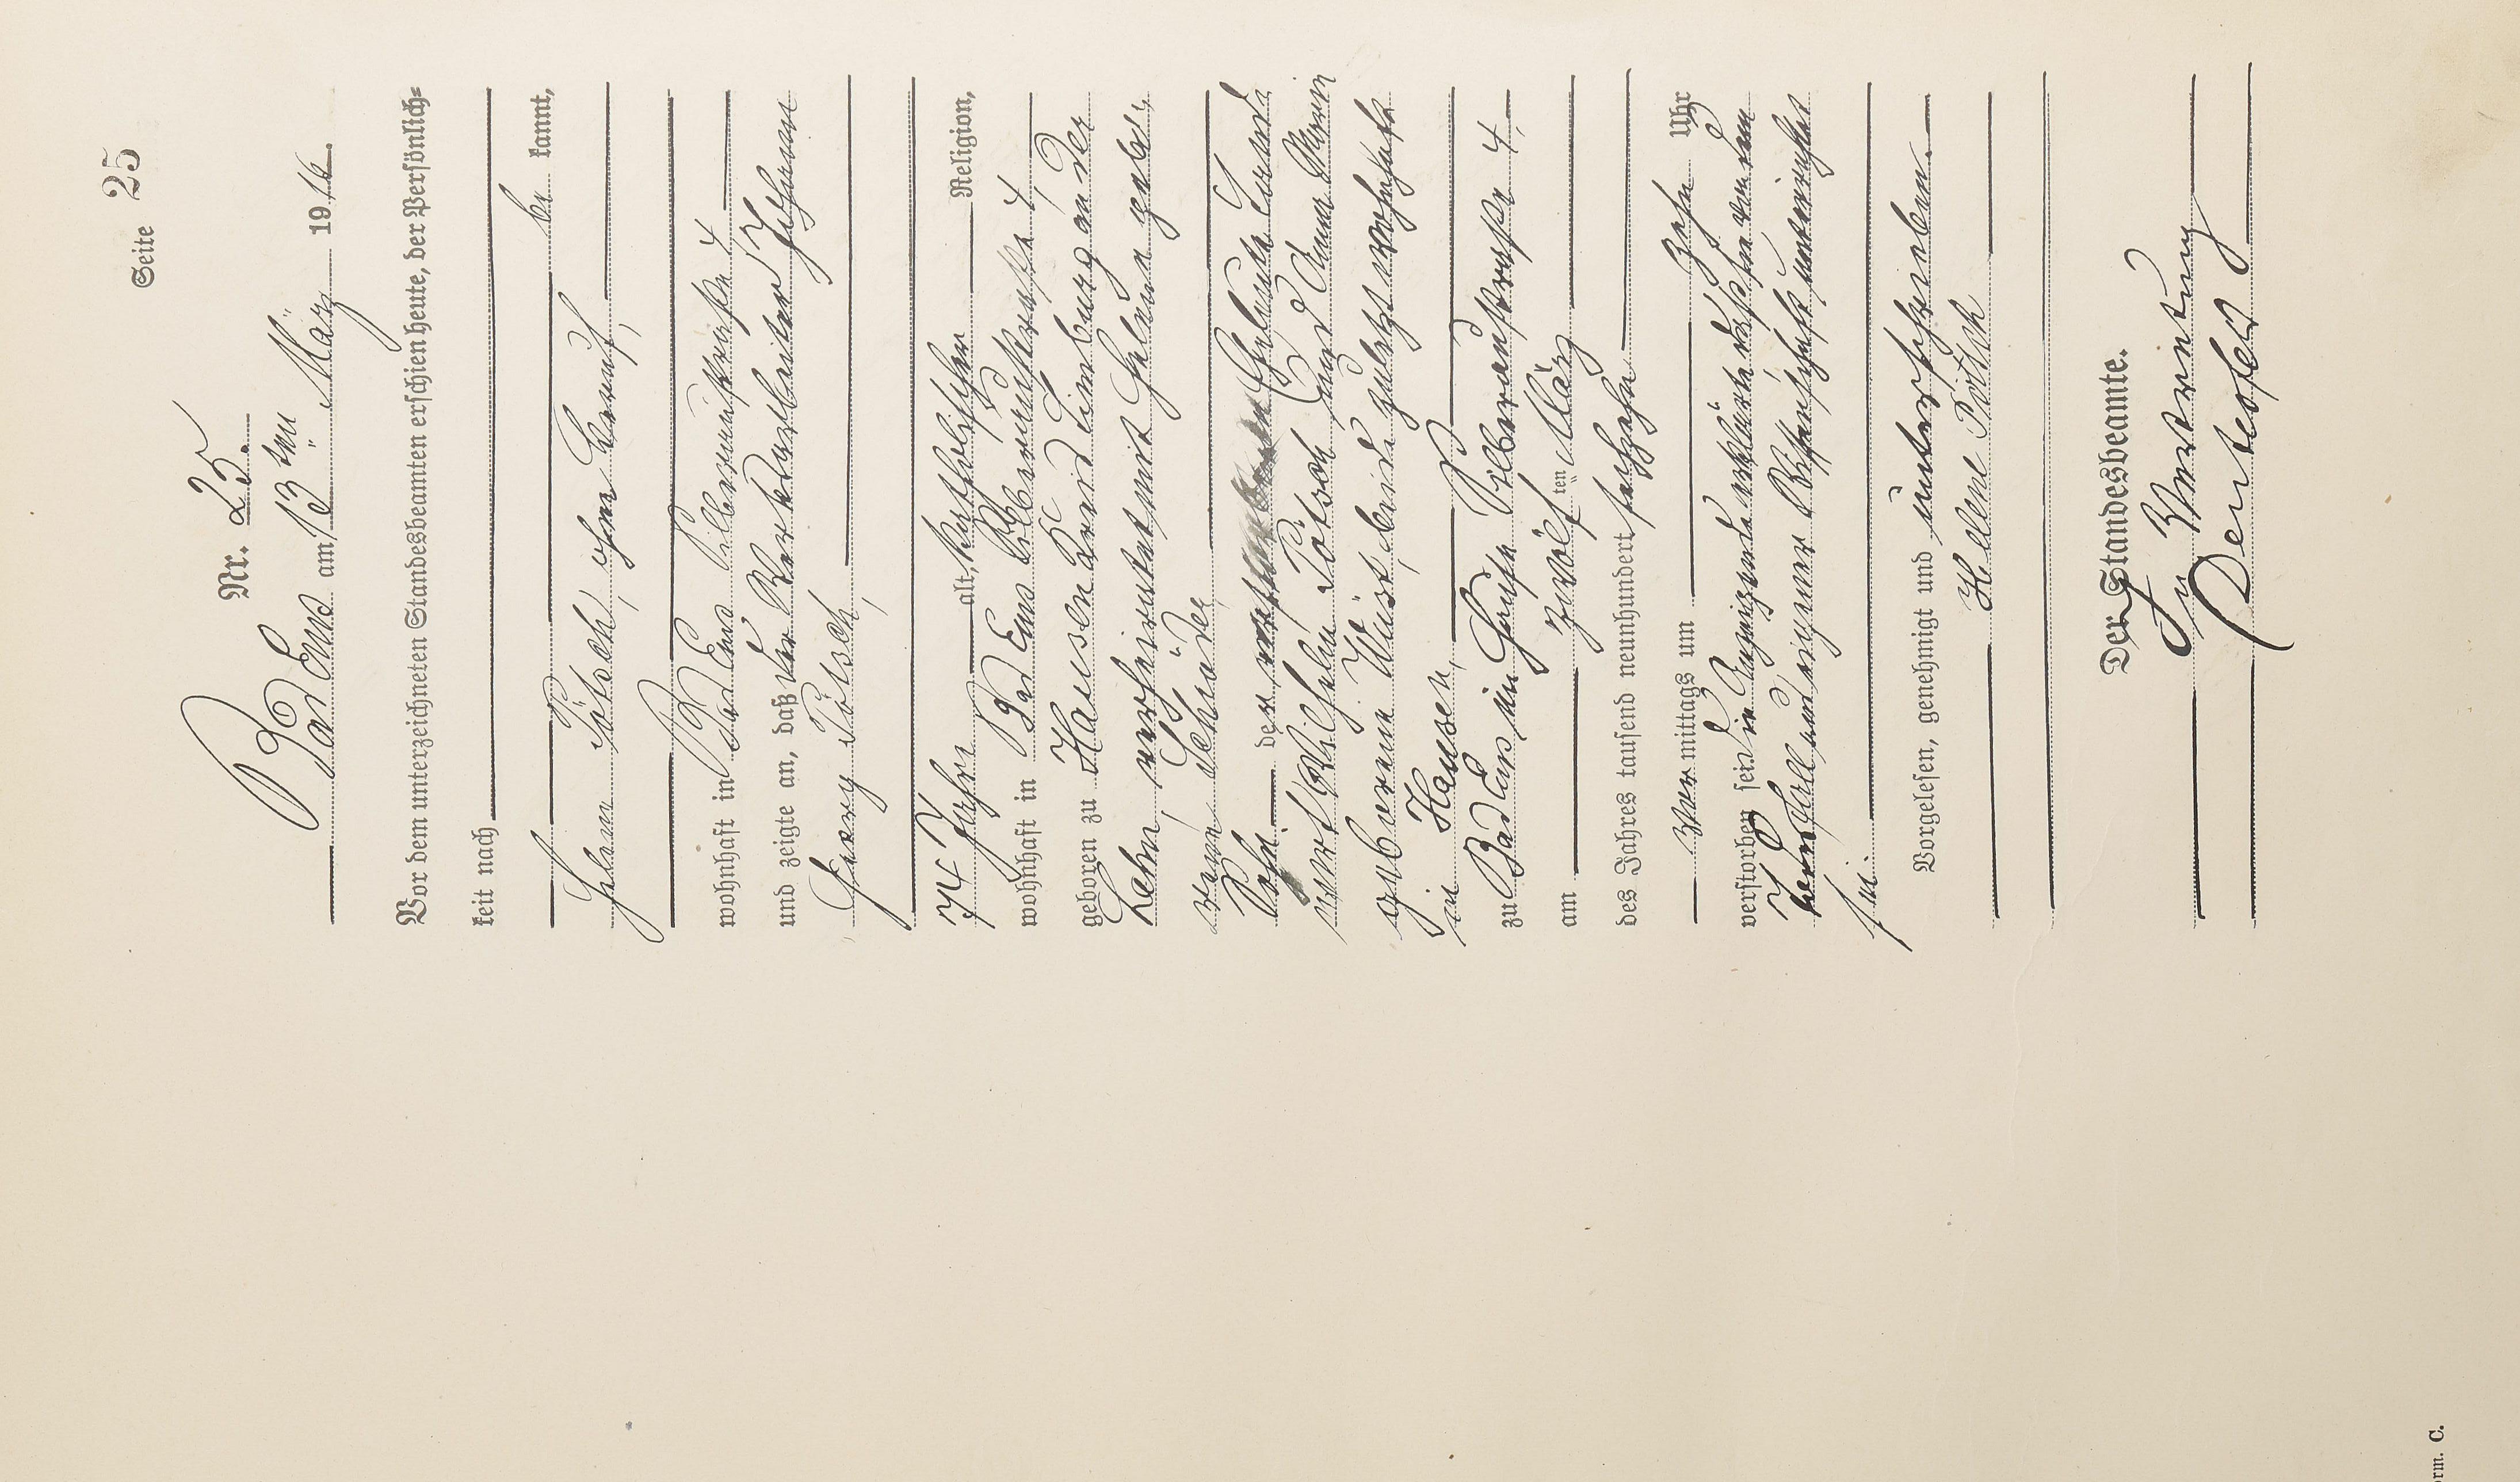 Seite 25
Nr. 25.
Bad Ems am 13ten März 1916.
Vor dem unterzeichneten Standesbeamten erschien heute, der Persönlich=
keit nach
be kannt,
Helene Pötsch, ohne Beruf,
wohnhaft in Bad Ems Silberaustraße 4
und zeigte an, daß der Werkarbeiter Johann
Georg Pötsch,
74 Jahre alt, katholischer Religion,
wohnhaft in Bad Ems Silberaustraße 4
geboren zu Hausen Kreis Limburg an der
Lahn, verheiratet mit Helena gebo=
rene Schnäder,
Sohn der verstorbenen Eheleute
Wilhelm Pötsch und Anna Maria
geborene Wüst, beide zuletzt wohnhaft
in Hausen,
zu Bad Ems im Hause Silberaustraße 4,
am zwölf ten März
des Jahres tausend neunhundert sechzehn
Vor mittags um zehn Uhr
verstorben sei. Die Anzeigende erklärte, daß sie von dem
Sterbefall aus eigener Wissenschaft unterrichtet
sei.
Vorgelesen, genehmigt und unterschrieben.
Helene Pötsch
Der Standesbeamte.
In Vertretung
rm. C.